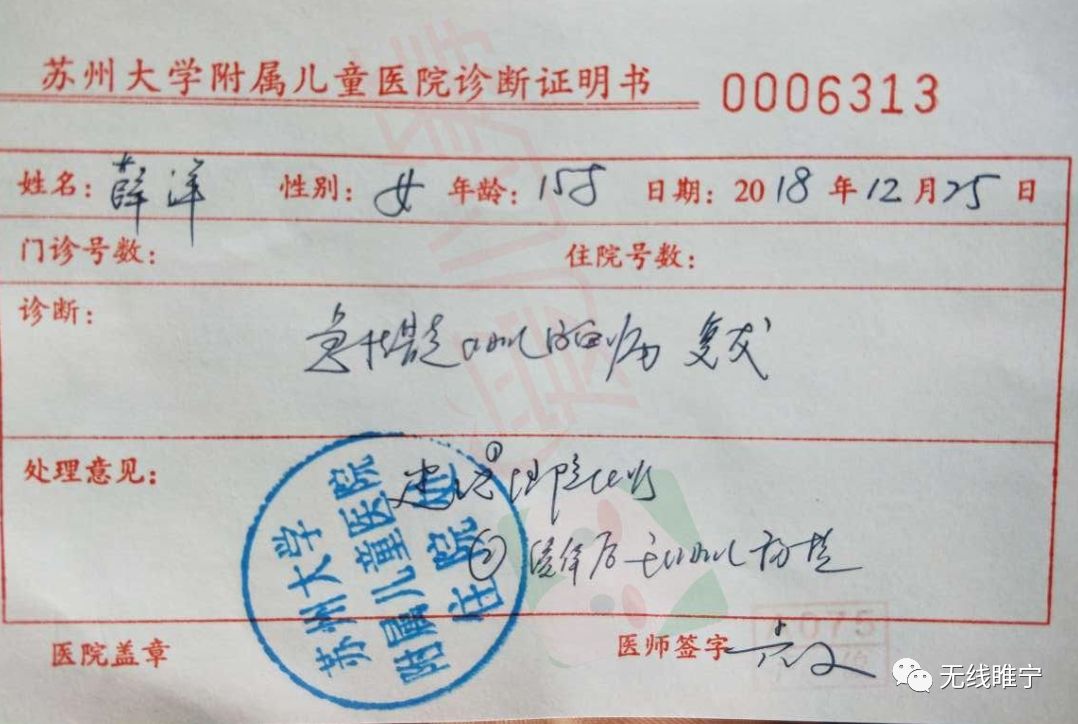 苏州大学附属儿童医院诊断证明书 0006313
姓名: 薛洋 性别: 女 年龄: 15岁 日期: 2018年12月25日
门诊号数: 住院号数:
诊断:
急性 白血病 复发
处理意见:
建议① 住院化疗
② 缓解后
苏州大学
附属儿童医院
住院处
医院盖章
医师签字
无线睢宁